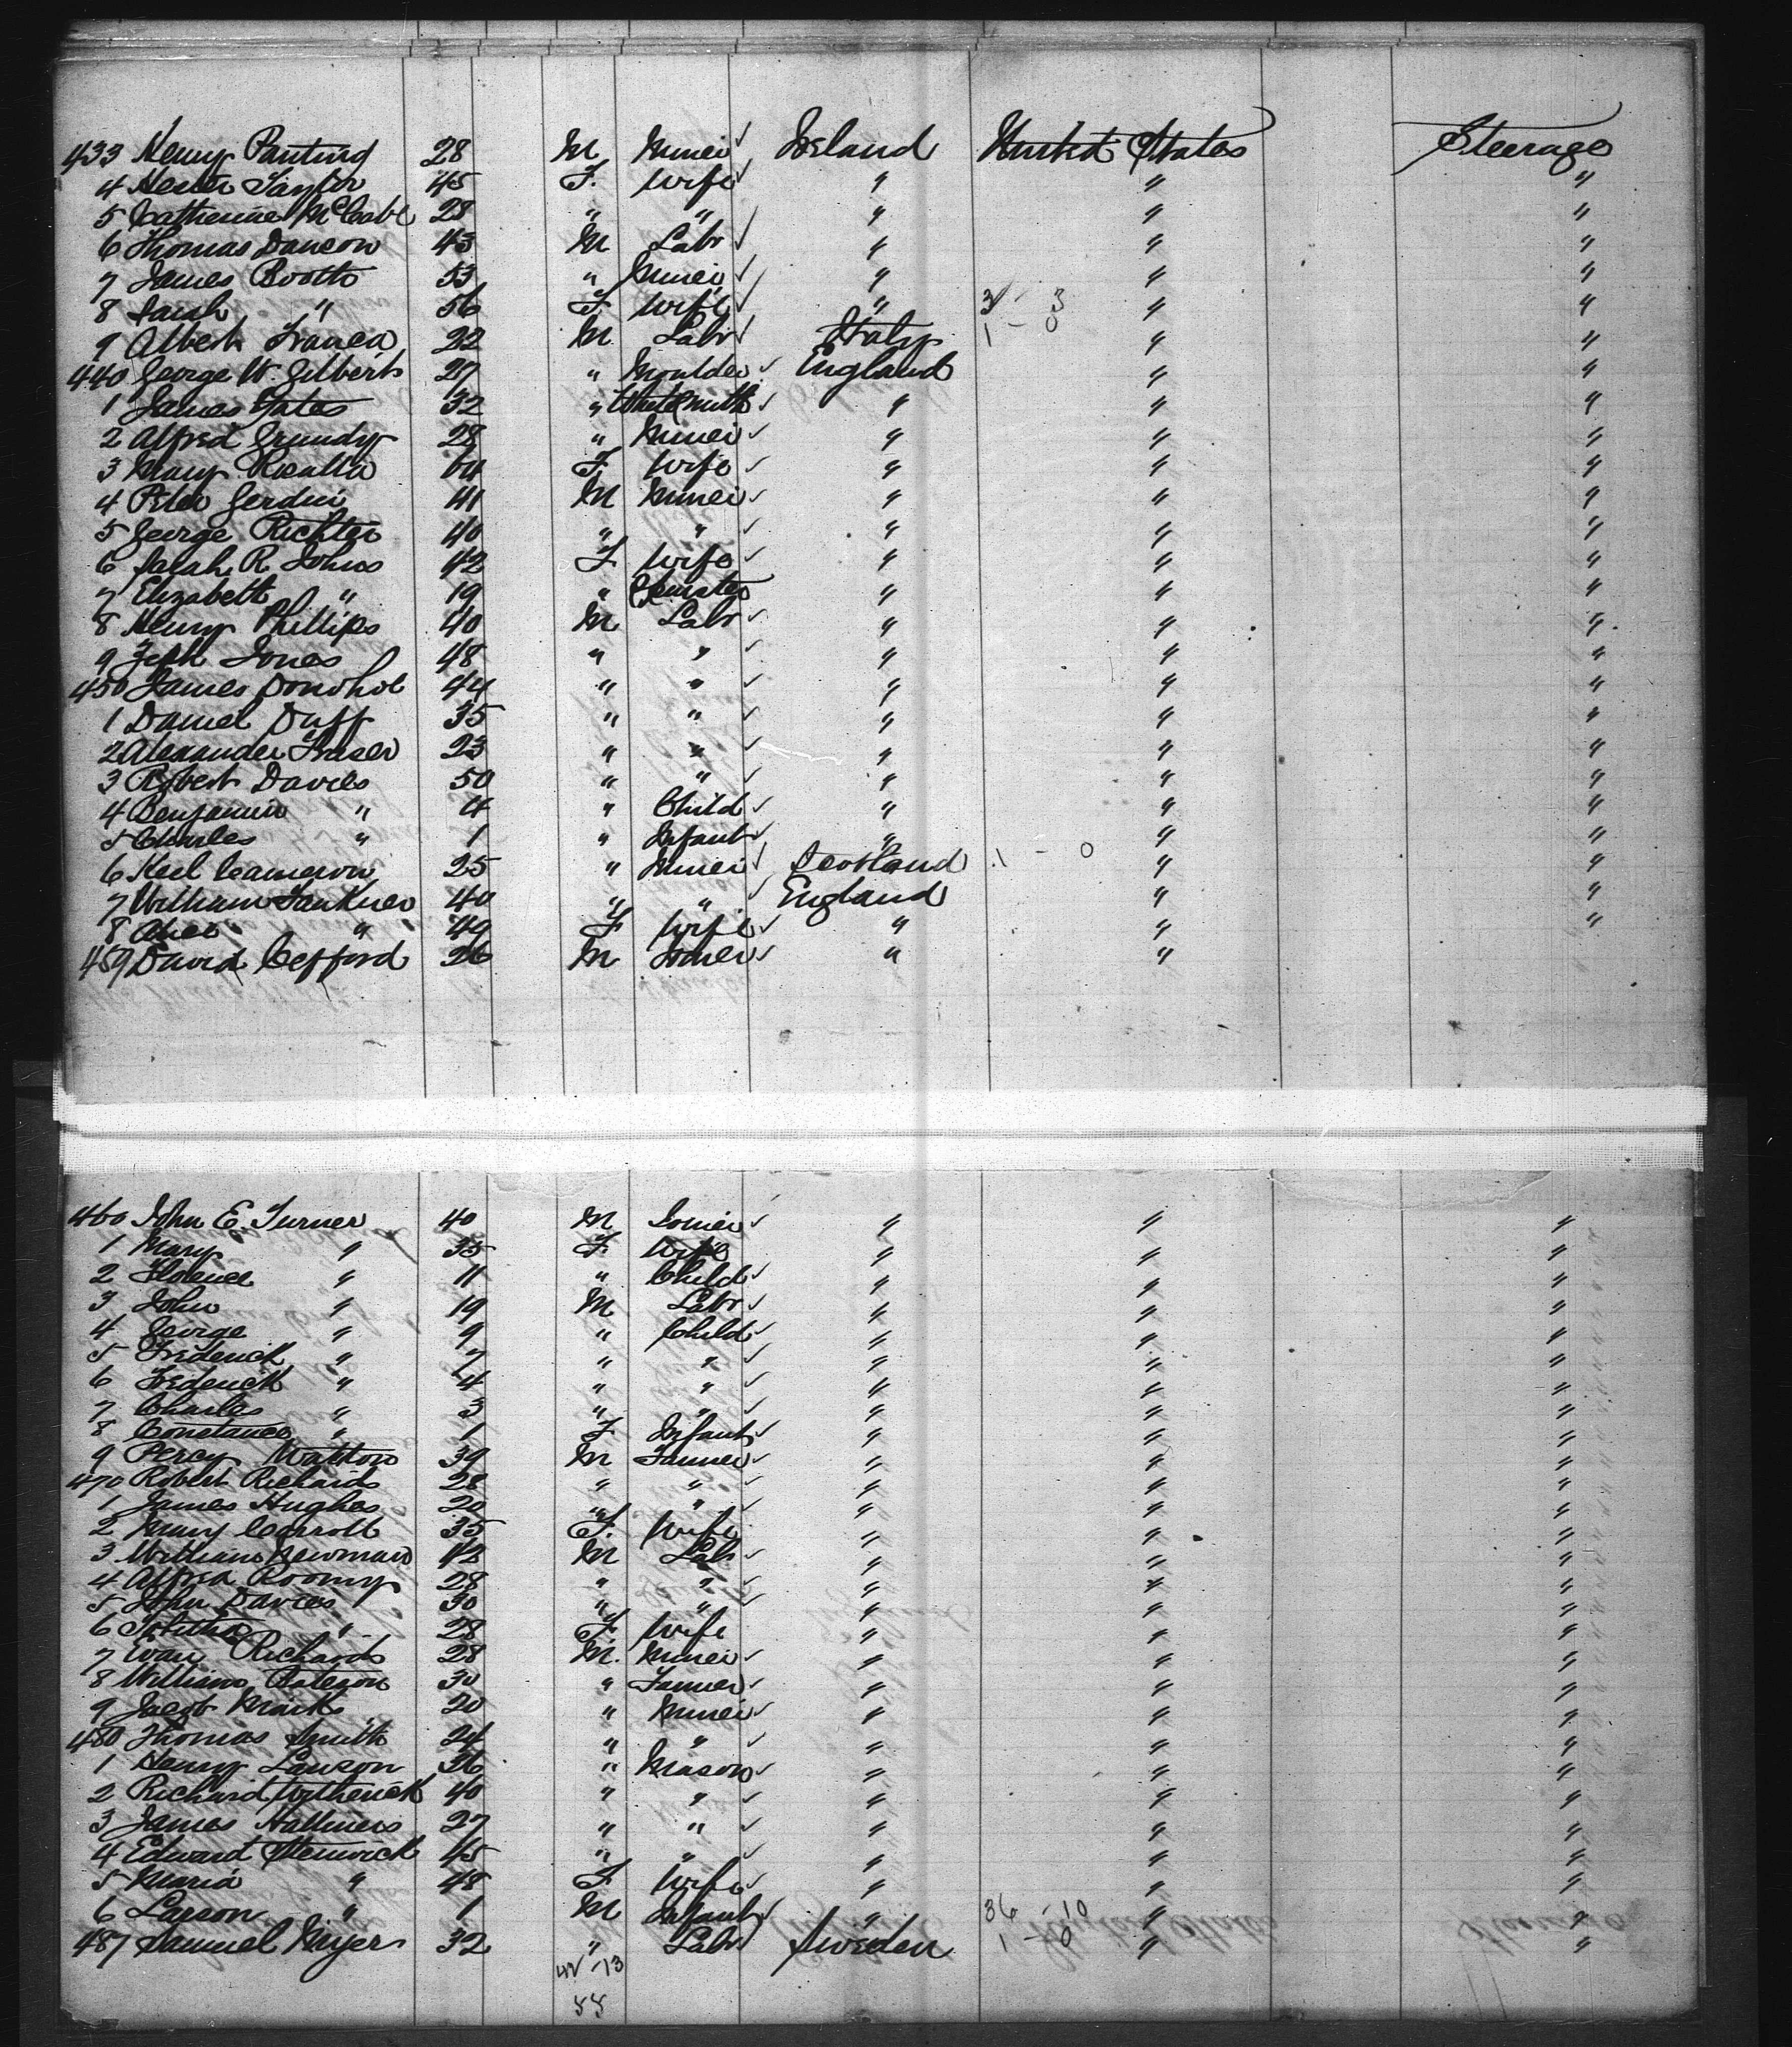 433 Henry Panting 28 M Miner Ireland United States Steerage
4 Hester Taylor 45 F. Wife " " "
5 Catherine McCabe 28 " " " " "
6 Thomas Dancon 43 M Labr " " "
7 James Booth 53 " Miner " " "
8 Sarah " 56 F Wife " 3 - 3 " "
9 Albert Franca 22 M Labr Italy 1 - 0 " "
440 George W. Gilbert 27 " Moulder England " "
1 James Yates 32 " Whitesmith " " "
2 Alfred Grundy 28 " Miner " " "
3 Mary 64 F Wife " " "
4 Peter Gerdin 41 M Miner " " "
5 George Richter 40 " " " " "
6 Sarah R. Johns 42 F Wife " " "
7 Elizabeth " 19 " Spinster " " "
8 Henry Phillips 40 M Labr " " "
9 Zeph Jones 48 " " " " "
450 James Donohoe 44 " " " " "
1 Daniel Duff 35 " " " " "
2 Alexander Fraser 23 " " " " "
3 Robert Davies 50 " " " " "
4 Benjamin " 4 " Child " " "
5 Charles " 1 " Infant " " "
6 Keil Cameron 25 " Miner Scotland 1 - 0 " "
7 William Faulkner 40 " " England " "
8 Alice " 49 F Wife " " "
459 David Cefford 26 M Joiner " "
460 John E. Turner 40 M Joiner " " "
1 Mary " 35 F. Wife " " "
2 Florence " 11 " Child " " "
3 John " 19 M Labr " " "
4 George " 9 " Child " " "
5 Frederick " 7 " " " " "
6 Frederick " 4 " " " " "
7 Charles " 3 " " " " "
8 Constance " 1 F Infant " " "
9 Percy Watton 39 M Farmer " " "
470 Robert Richards 28 " " " " "
1 James Hughes 20 " " " " "
2 Mary Carroll 35 F. Wife " " "
3 William Newman 42 M Labr " " "
4 Alfred Roomy 28 " " " " "
5 John Davies 30 " " " " "
6 Tabitha " 28 F Wife " " "
7 Evan Richards 28 M. Miner " " "
8 William Bateson 30 " Farmer " " "
9 Jacob Mark 20 " Miner " " "
480 Thomas Smith 24 " " " " "
1 Henry Lawson 36 " Mason " " "
2 Richard Witherick 40 " " " " "
3 James Halliners 27 " " " " "
4 Edward Sterwick 45 " " " " "
5 Maria " 48 F Wife " " "
6 Larson " 1 M Infant " 36 - 10 " "
487 Samuel Meyer 32 " Labr Sweden 1 - 0 " "
42 - 13
55